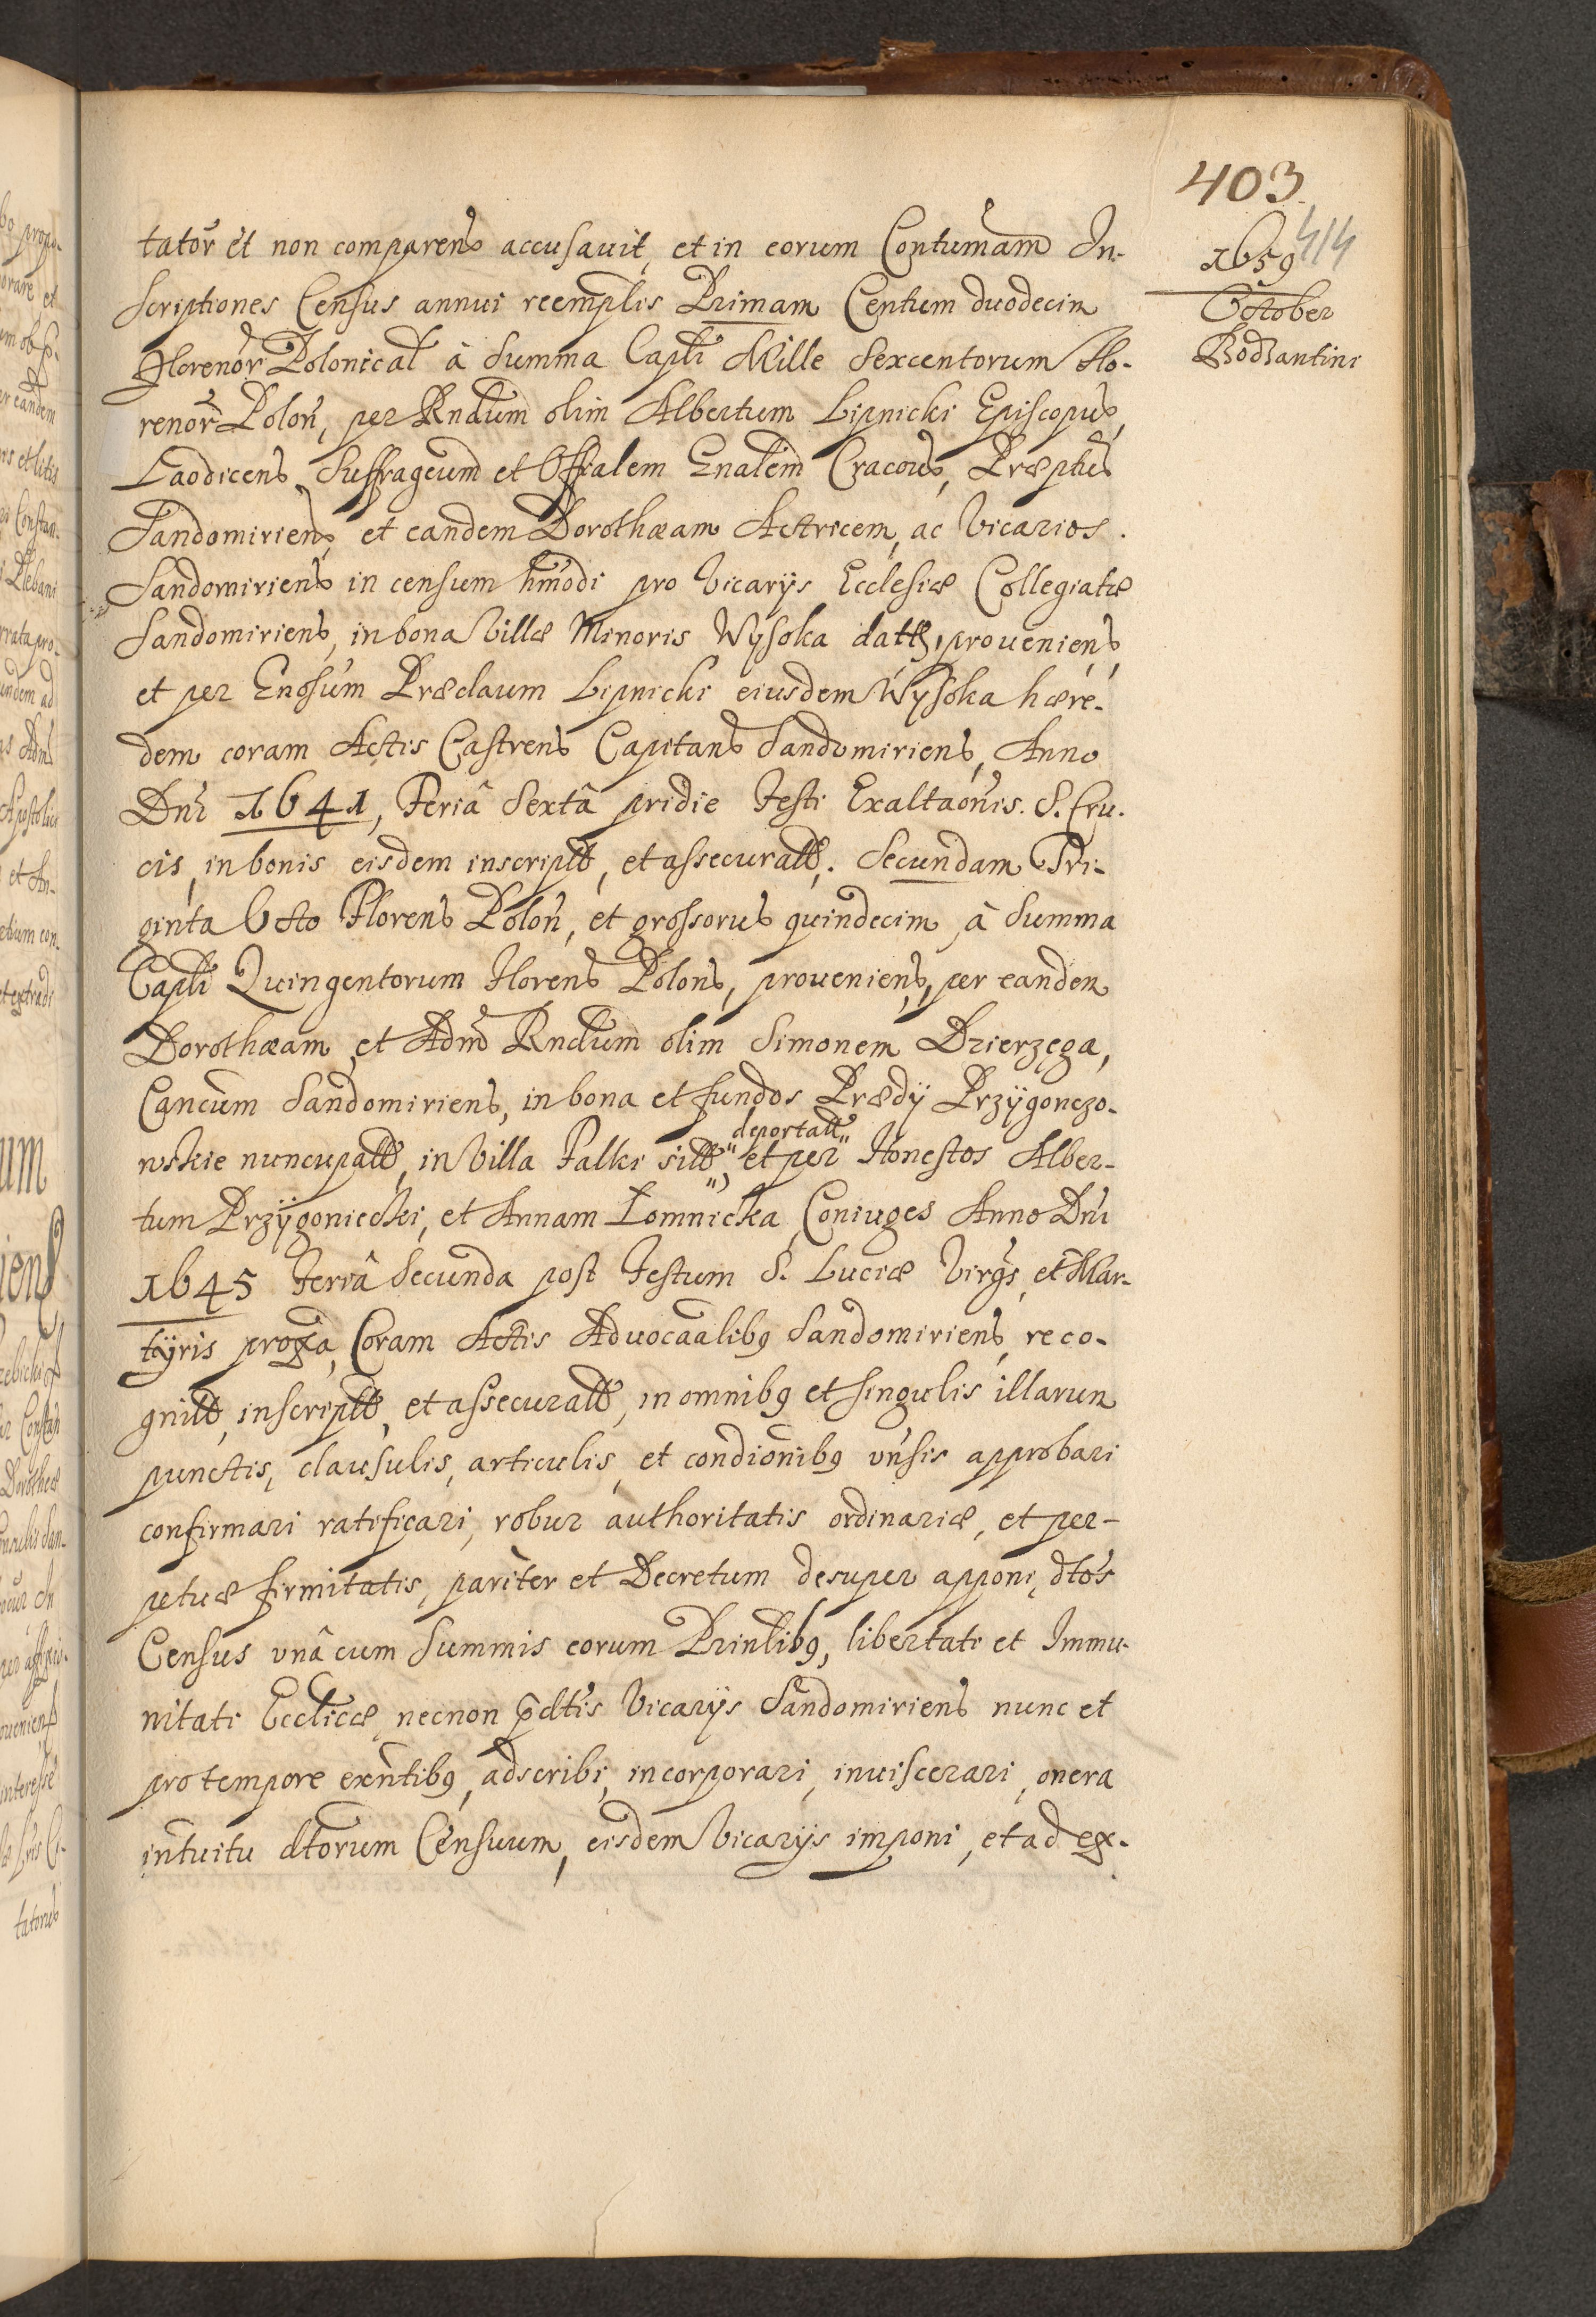 403
414
1659
October
Bodzantini
tator̃ et non comparens accusauit, et in eorum Contumam̃ In-
scriptiones Census annui reemplis Primam Centum duodecim
Florenor̃ Polonical à Summa Capłi Mille Sexcentorum Flo-
renor̃ Poloñ, per Rndum olim Albertum Lipnicki Episcopus,
Laodicens Suffrageum et Offialem Gnalem Cracous, Præptus
Sandomiriens, et eandem Dorothæam Actricem, ac Vicarios.
Sandomiriens in censum hm̃odi pro Vicarijs Ecclesiæ Collegiatæ
Sandomiriens, in bona Villæ Minoris Wysoka datt, proueniens,
et per Gnosum Præclaum Lipnicki eiusdem Wysoka hære-
dem coram Actis Castrens Capitans Sandomiriens, Anno
Dnĩ 1641, Feriâ Sextâ pridie Festi Exaltaõnis. S. Cru-
cis, in bonis eisdem inscriptt, et assecuratt. Secundam Tri-
ginta Octo Florens Poloñ, et grossorus quindecim, à Summa
Capłi Quingentorum Florens Polons, proueniens, per eandem
Dorothæam et Adm̃ Rndum olim Simonem Dzierzęga,
Cancum Sandomiriens, in bona et fundos Prædij Przÿgonczo-
wskie nuncupatt, in Villa Falki sitt,
deportatt
et per Honestos Alber-
tum Przÿgoniecki, et Annam Łomnicka Coniuges Anno Dnĩ
1645 Feriâ Secunda post Festum S. Luciæ Virgs, et Mar-
tÿris proxa, Coram Actis Aduocaalibꝯ Sandomiriens, reco-
gnitt, inscriptt, et assecuratt, in omnibꝯ et singulis illarum
punctis, clausulis, articulis, et condionibꝯ vñsis approbari
confirmari ratificari, robur authoritatis ordinariæ, et per-
petuæ firmitatis, paritèr et Decretum desuper apponi, dtos
Census vnâ cum Summis eorum Prinlibꝯ, libertati et Immu-
nitati Eccliccæ necnon p̃dtis Vicarijs Sandomiriens nunc et
pro tempore exñtibꝯ, adscribi, incorporari, inuiscerari, onera
intuitu dtorum Censuum, eisdem Vicarijs imponi, et ad ex-